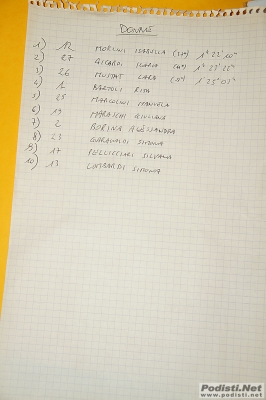 DONNE
1) 12 MORLINI ISABELLA (27ª) 1h 22' 10"
2) 27 GICARDI ILARIA 1h 23' 26"
3) 26 MUSTAT LARA 1h 25' 03"
4) 1 BARTOLI RITA
5) 25 MARCOLINI MANUELA
6) 19 MARASCHI GIULIANA
7) 2 BORSINA ALESSANDRA
8) 23 GARAVALDI SIMONA
9) 17 PELLICCIARI SILVANA
10) 13 LOMBARDI SIMONA
Podisti.Net
www.podisti.net